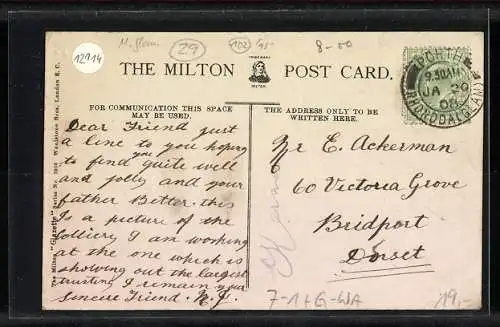 12914
M. Glam.
29
102
95
8-00
THE MILTON POST CARD.
MILTON
FOR COMMUNICATION THIS SPACE
MAY BE USED.
THE ADDRESS ONLY TO BE
WRITTEN HERE.
PORTH
9.30AM
JA 29
08
RHONDDA (GLAM)
Dear Friend just
a line to you hoping
to find you quite well
and jolly and your
father Better. this
Is a picture of the
Colliery I am working
at the one which is
showing out the largest
trusting I remain your
Sincere Friend. N. J.
Mr E. Ackerman
60 Victoria Grove
Bridport
Dorset
The Milton "Glazette" Series No. Woolstone Bros. London E.C.
7-1+G-WA
19,-